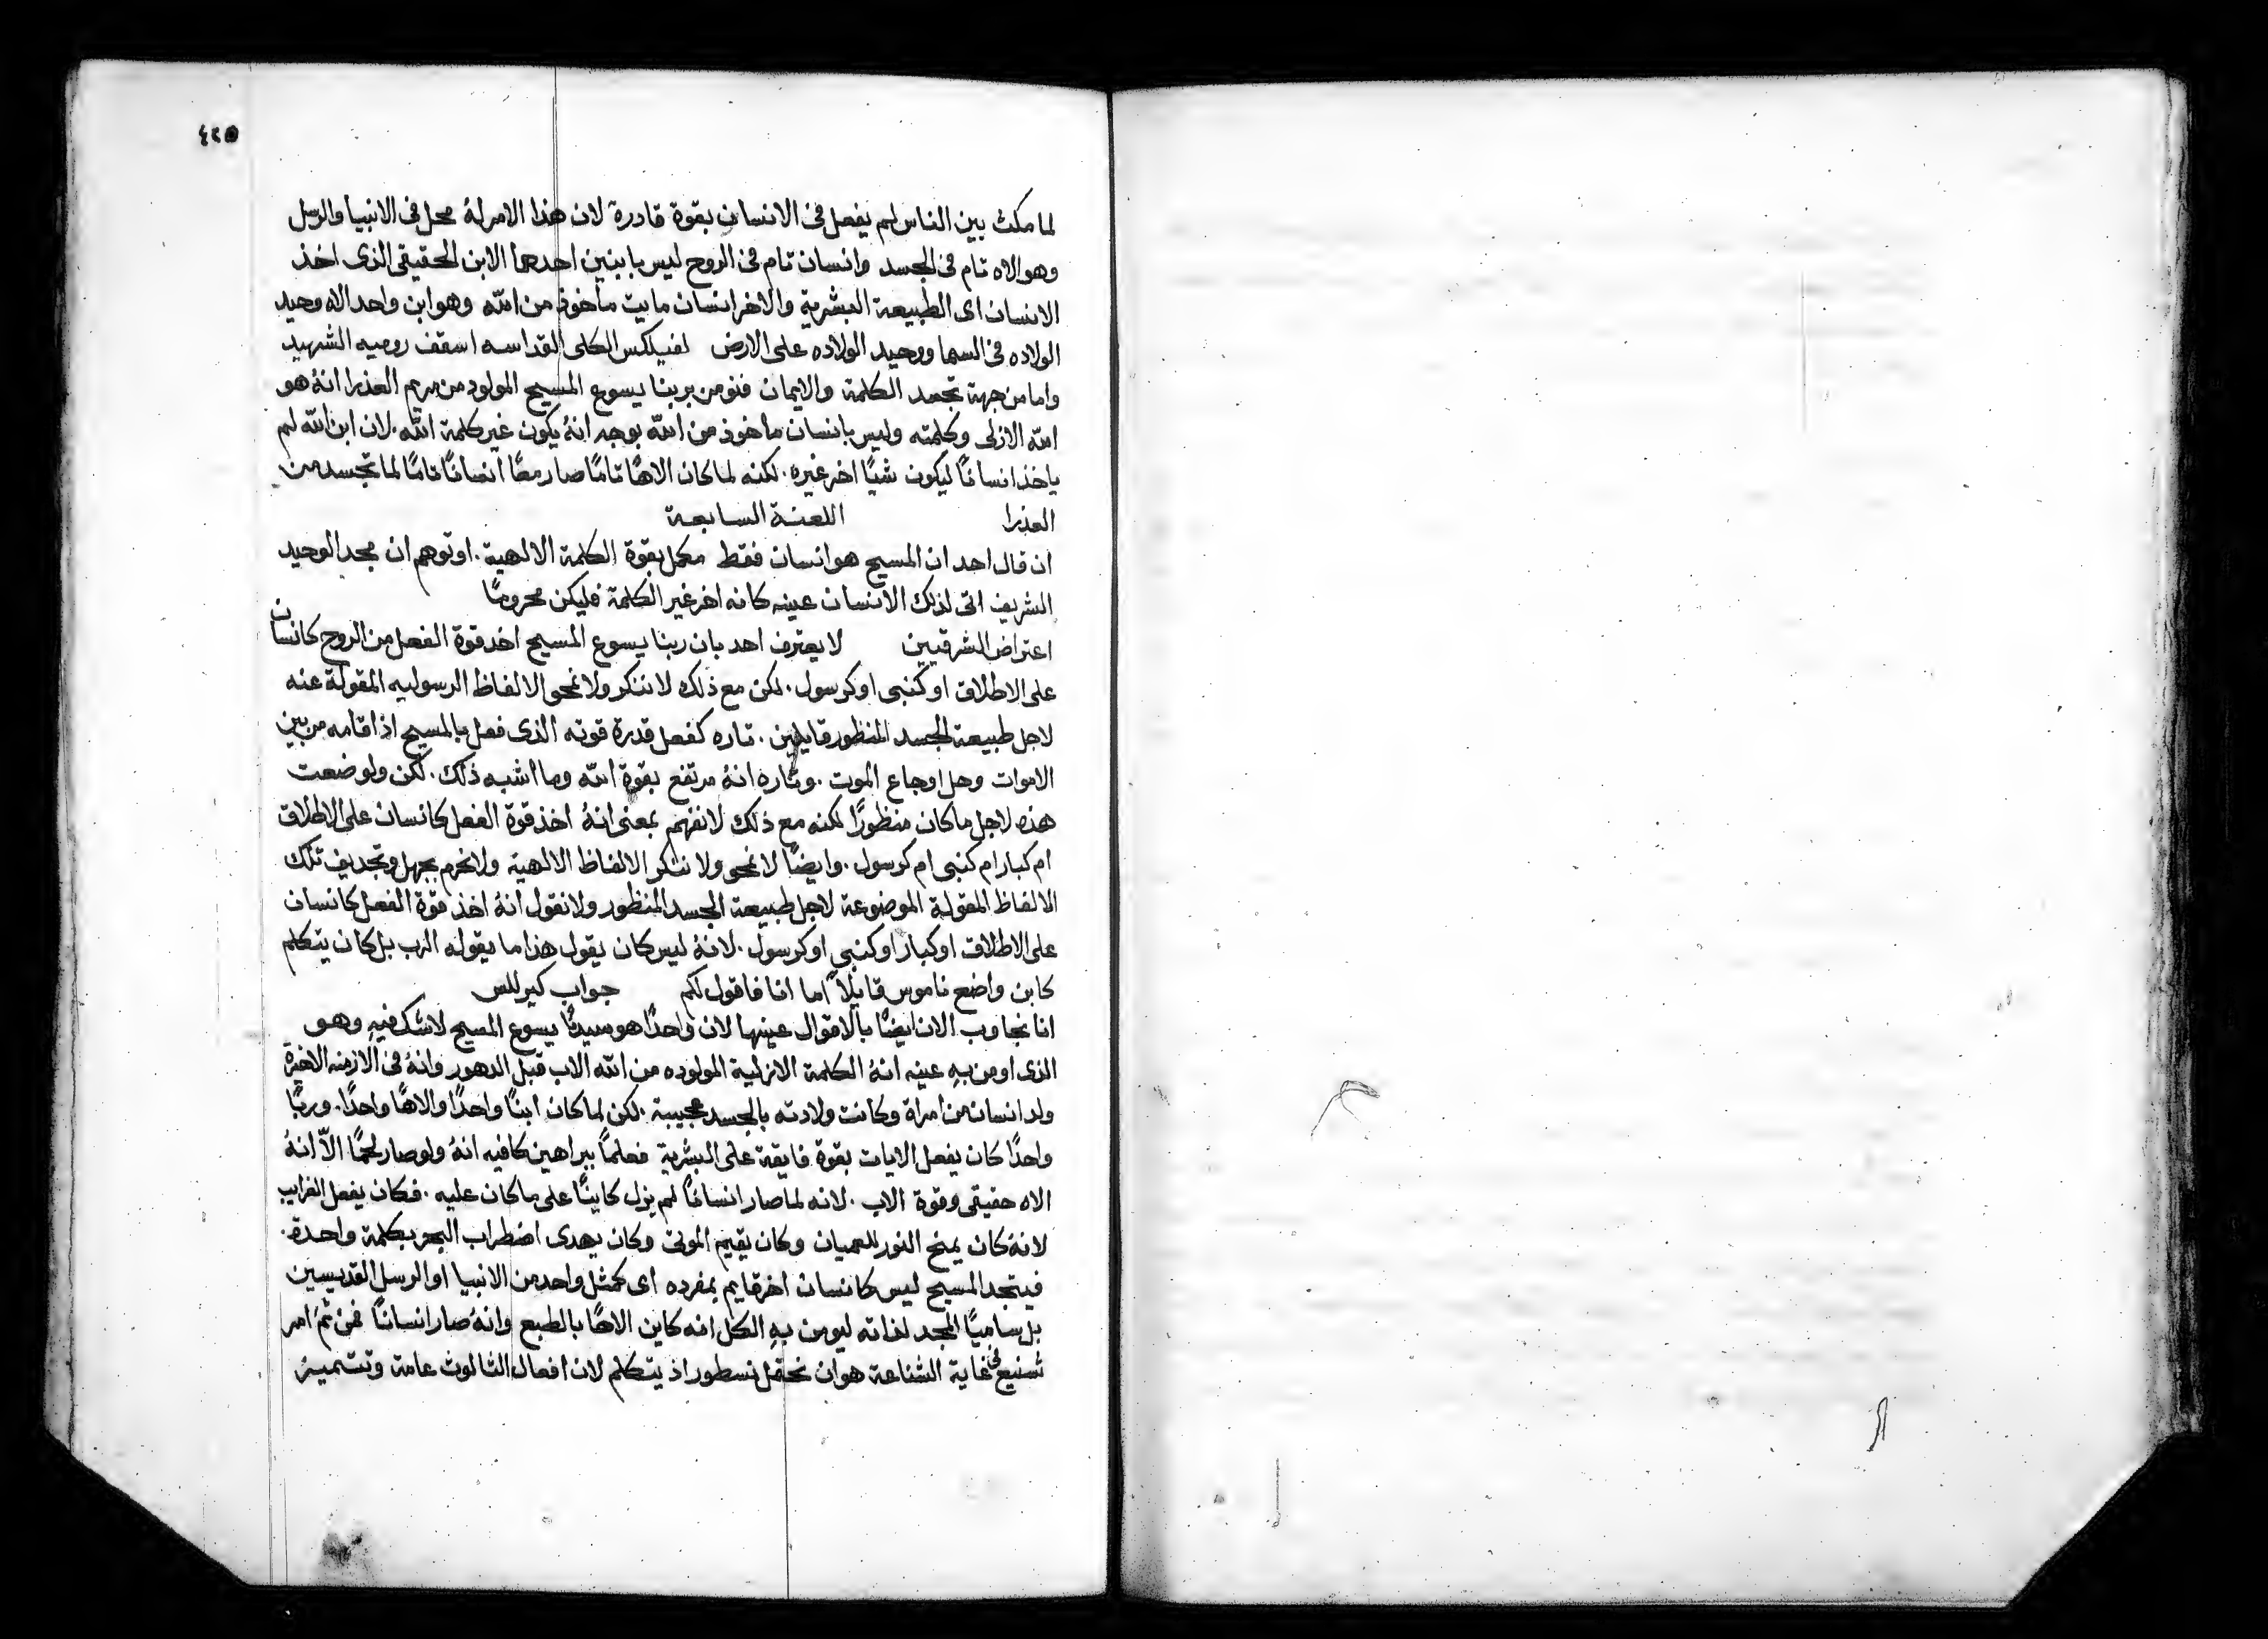 ٤٢٥
لما مكث بين الناس لم يفعل في الانسان بقوة قادرة لان هذا الامر لهُ محل في الانبيا والرسل
وهو الاه تام في الجسد وانسان تام في الروح ليس بابنين احدهما الابن الحقيقي الذي اخذ
الانسان اي الطبيعة البشرية والاخر انسان مايت ماخوذ من الله وهو ابن واحد الاه وحيد
الولاده في السما ووحيد الولاده على الارض لفيلكس الكلي القداسه اسقف روميه الشهيد
واما من جهة تجسد الكلمة والايمان فنومن بربنا يسوع المسيح المولود من مريم العذرا انهُ هو
الله الازلي وكلمته وليس بانسان ماخوذ من الله بوجه انهُ يكون غير كلمة الله. لان ابن الله لم
ياخذ انسانًا ليكون شيًا اخر غيره. لكنه لما كان الاهًا تامًا صار معًا انسانًا تامًا لما تجسد من
العذرا اللعنة السابعة
ان قال احد ان المسيح هو انسان فقط مكمل بقوة الكلمة الالهية. او توهم ان مجد الوحيد
الشريف اتى لذلك الانسان عينه كانه اخر غير الكلمة فليكن محرومًا
اعتراض الشرقيين لا يعترف احد بان ربنا يسوع المسيح اخد قوة الفعل من الروح كانسان
على الاطلاق او كنبي او كرسول. لكن مع ذلك لا ننكر ولا نمحو الالفاظ الرسوليه المقولة عنه
لاجل طبيعة الجسد المنظور قايلين. تاره كفعل قدرة قوته الذي فعل بالمسيح اذ اقامه من بين
الاموات وحل اوجاع الموت. وتاره انهُ مرتفع بقوة الله وما اشبه ذلك. لكن ولو ضعت
هذه لاجل ما كان منظورًا لكنه مع ذلك لا نفهم بمعنى انهُ اخذ قوة الفعل كانسان على الاطلاق
ام كبار ام كنبي ام كرسول. وايضًا لا نمحو ولا ننكر الالفاظ الالهية ولا نحرم بجهل وتجديف تلك
الالفاظ المقولة الموضوعة لاجل طبيعة الجسد المنظور ولا نقول انهُ اخذ قوة الفعل كانسان
على الاطلاق او كبار او كنبي او كرسول. لانهُ ليس كان يقول هذا ما يقوله الرب بل كان يتكلم
كابن واضع ناموس قايلاً اما انا فاقول لكم جواب كيرللس
انا نجاوب الان ايضًا بالاقوال عينها لان واحدًا هو سيدنا يسوع المسيح لا شك فيهِ وهو
الذي اومن بهِ عينه انهُ الكلمة الازلية المولوده من الله الاب قبل الدهور وانهُ في الازمنه الاخيرة
ولد انسان من امراة وكانت ولادته بالجسد عجيبة. لكن لما كان ابنًا واحدًا والاهًا واحدًا. وربًا
واحدًا كان يفعل الايات بقوة فايقة على البشرية فعلمًا ببراهين كافيه انهُ ولو صار لحمًا الاّ انهُ
الاه حقيقي وقوة الاب. لانه لما صار انسانًا لم يزل كاينًا على ما كان عليه. فكان يفعل الغرايب
لانهُ كان يمنح النور للعميان وكان يقيم الموتى وكان يهدي اضطراب البحر بكلمة واحدة.
فيتجد المسيح ليس كانسان اخر قايم بمفرده اي كمثل واحد من الانبيا او الرسل القديسين
بل ساميًا المجد لذاته ليومن بهِ الكل انه كاين الاهًا بالطبع وانهُ صار انسانًا فمن ثمَ امر
شنيع في غاية الشناعة هو ان نحتمل نسطور اذ يتكلم لان افعال الثالوث عامة وتتسمية